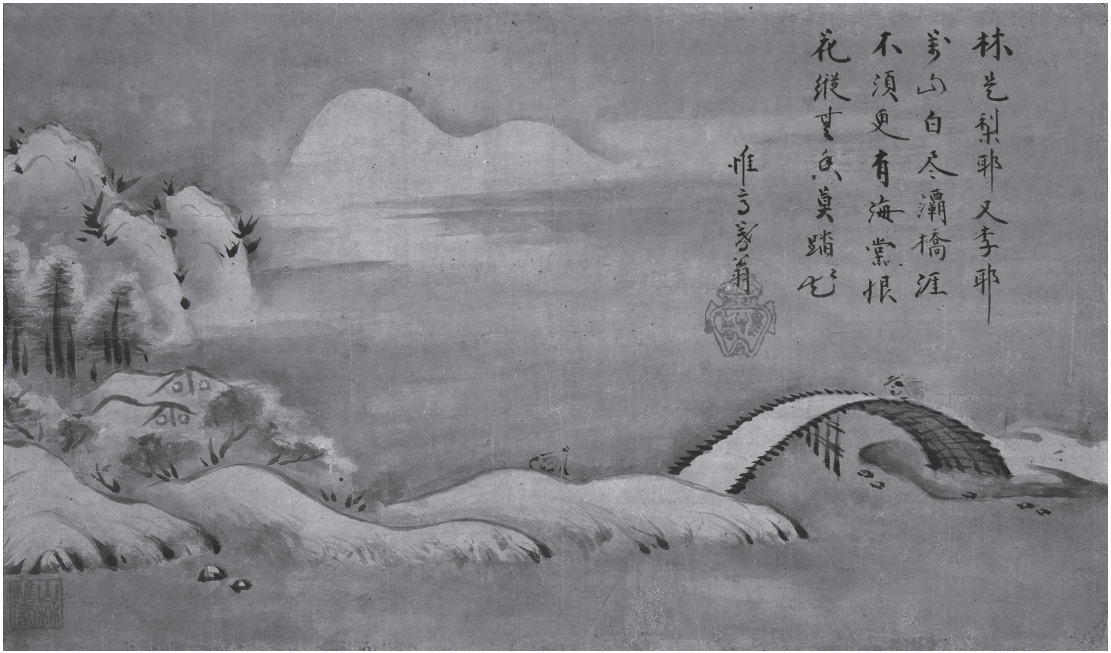 林是梨耶又李耶
万山白尽灞橋涯
不須更有海棠恨
花縦無香莫踏
惟高蕃翁